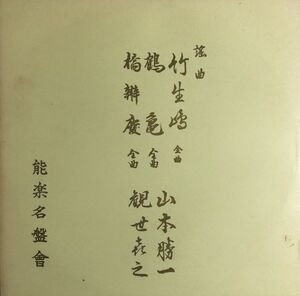 謡曲
竹生嶋 全曲 山本勝一
鶴亀 全曲
橋辨慶 全曲 観世喜之
能楽名盤會